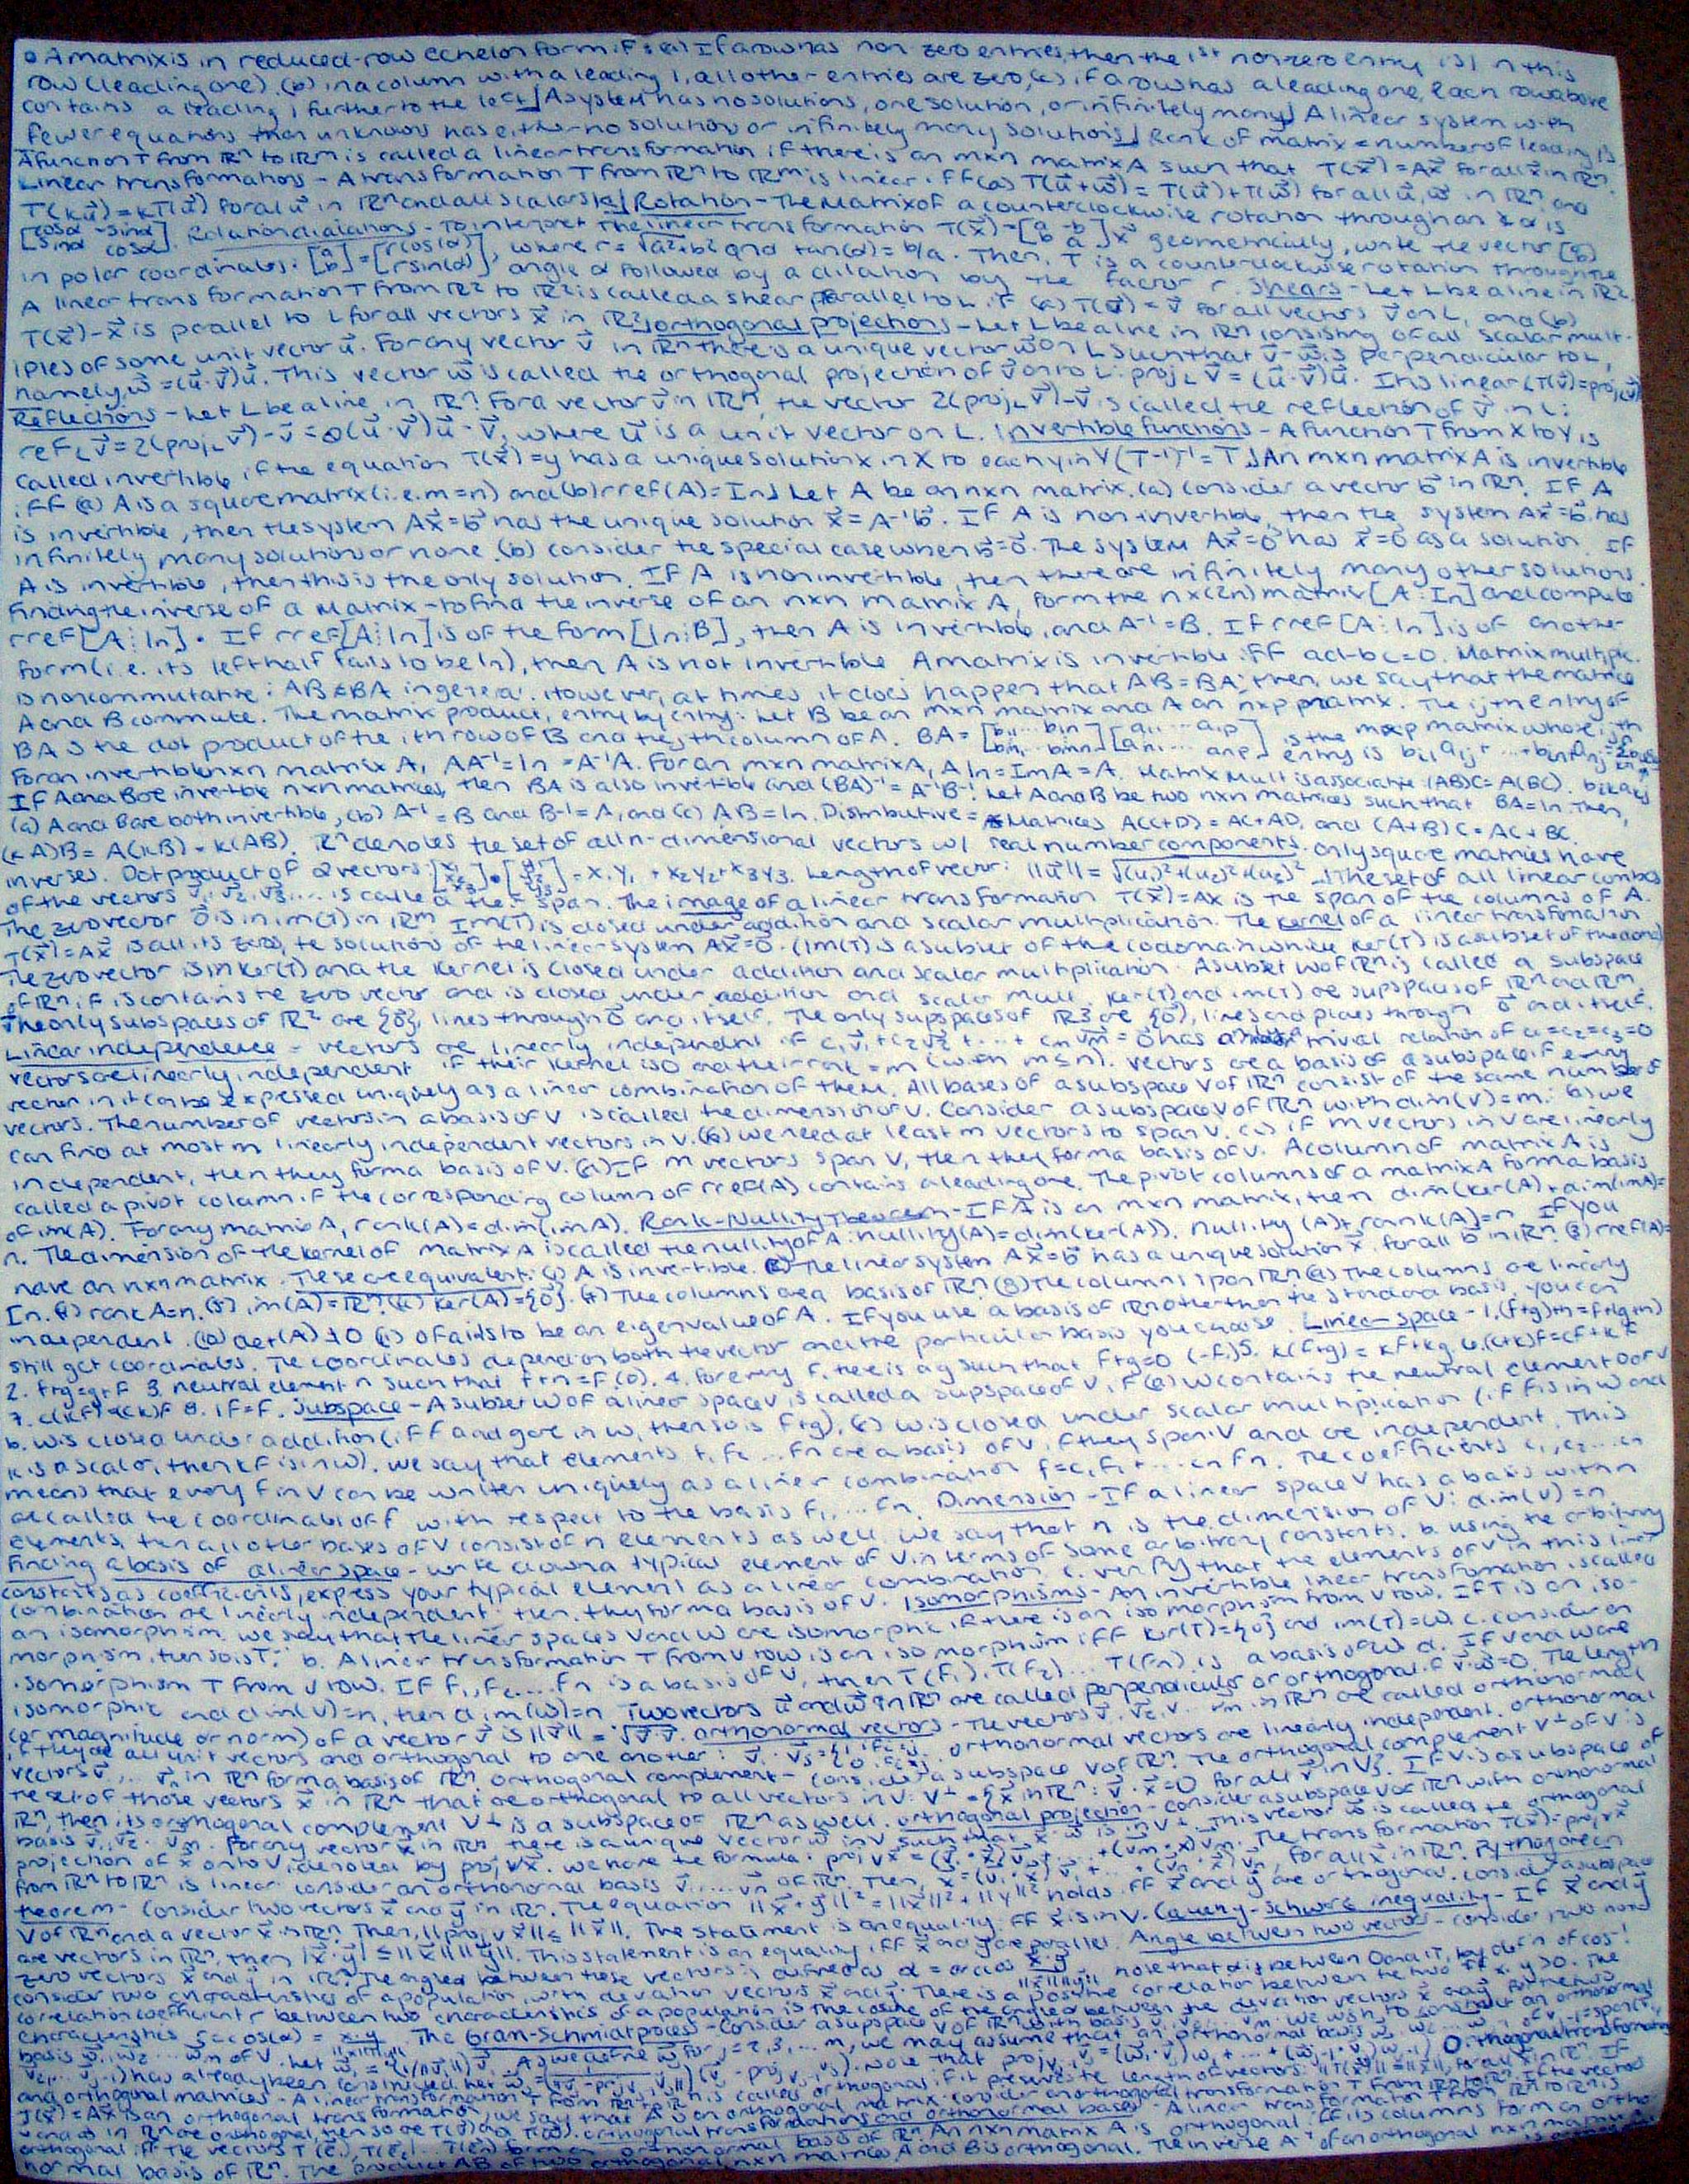 • A matrix is in reduced-row echelon form if: (a) If a row has non-zero entries, then the 1st non-zero entry is 1 in this
row (leading one). (b) in a column with a leading 1, all other entries are zero, (c) if a row has a leading one, each row above
contains a leading 1 further to the left] A system has no solutions, one solution, or infinitely many] A linear system with
fewer equations than unknowns has either no solutions or infinitely many solutions] Rank of matrix = number of leading 1s
A function T from ℝⁿ to ℝᵐ is called a linear transformation if there is an mxn matrix A such that T(x⃗) = Ax⃗ for all x⃗ in ℝⁿ.
Linear transformations - A transformation T from ℝⁿ to ℝᵐ is linear iff (a) T(u⃗+w⃗) = T(u⃗)+T(w⃗) for all u⃗, w⃗ in ℝⁿ and
T(ku⃗) = kT(u⃗) for all u⃗ in ℝⁿ and all scalars k] Rotation - The Matrix of a counterclockwise rotation through an ∡ α is
[cosα -sinα sinα cosα]. Rotation dialations - To interpret the linear transformation T(x⃗) = [a -b b a]x⃗ geometrically, write the vector [a b]
in polar coordinates: [a b] = [rcos(α) rsin(α)], where r = √a²+b² and tan(α) = b/a. Then, T is a counterclockwise rotation through the
angle α followed by a dilation by the factor r. Shears - Let L be a line in ℝ².
A linear transformation T from ℝ² to ℝ² is called a shear parallel to L if (a) T(v⃗) = v⃗ for all vectors v⃗ on L, and (b)
T(x⃗)-x⃗ is parallel to L for all vectors x⃗ in ℝ²] orthogonal projections - Let L be a line in ℝⁿ consisting of all scalar mult-
iples of some unit vector u⃗. For any vector v⃗ in ℝⁿ there is a unique vector w⃗ on L such that v⃗-w⃗ is perpendicular to L,
namely, w⃗ = (u⃗·v⃗)u⃗. This vector w⃗ is called the orthogonal projection of v⃗ onto L: proj_L v⃗ = (u⃗·v⃗)u⃗. It is linear (T(v⃗) = proj_L(v⃗)
Reflections - Let L be a line in ℝⁿ. For a vector v⃗ in ℝⁿ, the vector 2(proj_L v⃗)-v⃗ is called the reflection of v⃗ in L:
ref_L v⃗ = 2(proj_L v⃗)-v⃗ = 2(u⃗·v⃗)u⃗-v⃗, where u⃗ is a unit vector on L. Invertible functions - A function T from X to Y is
called invertible if the equation T(x⃗) = y has a unique solution x in X to each y in Y (T⁻¹)⁻¹ = T] An mxn matrix A is invertible
iff (a) A is a square matrix (i.e. m=n) and (b) rref(A) = In] Let A be an nxn matrix. (a) consider a vector b⃗ in ℝⁿ. If A
is invertible, then the system Ax⃗=b⃗ has the unique solution x⃗ = A⁻¹b⃗. If A is non-invertible, then the system Ax⃗=b⃗ has
infinitely many solutions or none. (b) consider the special case when b⃗=0⃗. The system Ax⃗=0⃗ has x⃗=0⃗ as a solution. If
A is invertible, then this is the only solution. If A is noninvertible, then there are infinitely many other solutions.
Finding the inverse of a Matrix - to find the inverse of an nxn matrix A, form the nx(2n) matrix [A⋮In] and compute
rref[A⋮In]. If rref[A⋮In] is of the form [In⋮B], then A is invertible, and A⁻¹=B. If rref[A⋮In] is of another
form (i.e. its left half fails to be In), then A is not invertible A matrix is invertible iff ad-bc=0. Matrix multiplic.
is noncommutative: AB≠BA in general. However, at times it does happen that AB=BA; then, we say that the matrices
A and B commute. The matrix product, entry by entry: Let B be an mxn matrix and A an nxp matrix. The ijth entry of
BA is the dot product of the ith row of B and the jth column of A. BA = is the mxp matrix whose ijth
entry is
For an invertible nxn matrix A, AA⁻¹ = In = A⁻¹A. For an mxn matrix A, A In = Im A = A. Matrix Mult is associative (AB)C = A(BC).
If A and B are invertible nxn matrices, then BA is also invertible and (BA)⁻¹ = A⁻¹B⁻¹. Let A and B be two nxn matrices such that BA=In. Then,
(a) A and B are both invertible, (b) A⁻¹ = B and B⁻¹ = A, and (c) AB = In. Distributive = Matrices A(C+D) = AC+AD, and (A+B)C = AC+BC.
(kA)B = A(kB) = k(AB). ℝⁿ denotes the set of all n-dimensional vectors w/ real number components. only square matrices have
inverses. Dot product of 2 vectors: = x₁y₁ + x₂y₂ + x₃y₃. Length of vector: ||u⃗|| = √(u₁)²+(u₂)²+(u₃)². The set of all linear combos
of the vectors v⃗₁, v⃗₂, v⃗₃... is called the span. The image of a linear transformation T(x⃗) = Ax is the span of the columns of A.
The zero vector 0⃗ is in im(T) in ℝᵐ. Im(T) is closed under addition and scalar multiplication. The kernel of a linear transformation
T(x⃗)=Ax⃗ is all its zeros, the solutions of the linear system Ax⃗=0⃗. (Im(T) is a subset of the codomain while Ker(T) is a subset of the domain)
The zero vector is in Ker(T) and the Kernel is closed under addition and scalar multiplication. A subset W of ℝⁿ is called a subspace
of ℝⁿ if is contains the zero vector and is closed under addition and scalar mult. Ker(T) and im(T) are supspaces of ℝⁿ and ℝᵐ.
The only subspaces of ℝ² are {0⃗}, lines through 0⃗ and itself. The only supspaces of ℝ³ are {0⃗}, lines and planes through 0⃗ and itself.
Linear independence - vectors are linearly independent if c₁v⃗₁+c₂v⃗₂+...+cmv⃗m=0⃗ has trivial relation of c₁=c₂=c₃=0
vectors are linearly independent if their Kernel is 0 and their rank = m (with m≤n). vectors are a basis of a subspace if every
vector in it can be expressed uniquely as a linear combination of them. All bases of a subspace V of ℝⁿ consist of the same number of
vectors. The number of vectors in a basis of V is called the dimension of V. Consider a subspace V of ℝⁿ with dim(V)=m. a) we
can find at most m linearly independent vectors in V. (b) we need at least m vectors to span V. (c) if m vectors in V are linearly
independent, then they form a basis of V. (d) If m vectors span V, then they form a basis of V. A column of matrix A is
called a pivot column if the corresponding column of rref(A) contains a leading one. The pivot columns of a matrix A form a basis
of im(A). For any matrix A, rank(A) = dim(imA). Rank-Nullity Theorem - If A is an mxn matrix, then dim(ker(A)+dim(imA)=
n. The dimension of the kernel of matrix A is called the nullity of A: nullity(A)=dim(ker(A)). nullity(A)+rank(A)=n If you
have an nxn matrix. These are equivalent: (1) A is invertible. (2) The linear system Ax⃗=b⃗ has a unique solution x⃗, for all b⃗ in ℝⁿ. (3) rref(A)=
In. (4) rank A=n. (5) im(A)=ℝⁿ. (6) Ker(A)={0⃗}. (7) The columns are a basis of ℝⁿ. (8) The columns span ℝⁿ (9) The columns are linearly
independent. (10) det(A)≠0 (11) 0 fails to be an eigenvalue of A. If you use a basis of ℝⁿ other than the standard basis, you can
still get coordinates. The coordinates depend on both the vector and the particular basis you choose. Linear space - 1. (f+g)+h=f+(g+h)
2. f+g=g+f 3. neutral element n such that f+n=f (0). 4. for every f, there is a g such that f+g=0 (-f.) 5. k(f+g)=kf+kg 6. (c+k)f=cf+kf
7. c(kf)=(ck)f 8. 1f=f. Subspace - A subset W of a linear space V is called a supspace of V if (a) W contains the neutral element 0 of V
b. W is closed under addition (if f and g are in W, then so is f+g), (c) W is closed under scalar multiplication (if f is in W and
k is a scalar, then kf is in W). we say that elements f₁, f₂ ... fn are a basis of V if they span V and are independent. This
means that every f in V can be written uniquely as a linear combination f=c₁f₁+...cnfn. The coefficients c₁, c₂...cn
are called the coordinates of f with respect to the basis f₁,...fn. Dimension - If a linear space V has a basis with n
elements, then all other bases of V consist of n elements as well. we say that n is the dimension of V: dim(V)=n
Finding a basis of a linear space - write down a typical element of V in terms of some arbitrary constants. b. using the arbitrary
constants as coefficients, express your typical element as a linear combination. c. verify that the elements of V in this linear
combination are linearly independent. then, they form a basis of V. Isomorphisms - An invertible linear transformation is called
an isomorphism. we say that the linear spaces V and W are isomorphic if there is an isomorphism from V to W. If T is an iso-
morphism, then so is T⁻¹ b. A linear transformation T from V to W is an isomorphism iff Ker(T)={0} and im(T)=W. c. consider an
isomorphism T from V to W. If f₁, f₂, ... fn is a basis of V, then T(f₁), T(f₂) ... T(fn) is a basis of W. d. If V and W are
isomorphic and dim(V)=n, then dim(W)=n Two vectors v⃗ and w⃗ in ℝⁿ are called perpendicular or orthogonal if v⃗·w⃗=0. The length
(or magnitude or norm) of a vector v⃗ is ||v⃗|| = √v⃗·v⃗. orthonormal vectors - The vectors in ℝⁿ are called orthonormal
if they are all unit vectors and orthogonal to one another: orthonormal vectors are linearly independent. orthonormal
vectors v⃗₁... v⃗n in ℝⁿ form a basis of ℝⁿ. orthogonal complement - consider a subspace V of ℝⁿ. The orthogonal complement V⊥ of V is
the set of those vectors x⃗ in ℝⁿ that are orthogonal to all vectors in V: V⊥ = {x⃗ in ℝⁿ: v⃗·x⃗=0 for all v⃗ in V}. If V is a subspace of
ℝⁿ, then its orthogonal complement V⊥ is a subspace of ℝⁿ as well. orthogonal projection - consider a subspace V of ℝⁿ with orthonormal
basis v⃗₁, v⃗₂ ... v⃗m. For any vector x⃗ in ℝⁿ there is a unique vector w⃗ in V such that x⃗-w⃗ is in V⊥. This vector w⃗ is called the orthogonal
projection of x⃗ onto V, denoted by proj_V x⃗. we have the formula: proj_V x⃗ = (v⃗₁·x⃗)v⃗₁+...+(v⃗m·x⃗)v⃗m. The transformation T(x⃗)=proj_V x⃗
from ℝⁿ to ℝⁿ is linear. consider an orthonormal basis v⃗₁,...v⃗n of ℝⁿ. Then, x⃗=(v⃗₁·x⃗)v⃗₁+...+(v⃗n·x⃗)v⃗n, for all x⃗ in ℝⁿ. Pythagorean
theorem - Consider two vectors x⃗ and y⃗ in ℝⁿ. The equation ||x⃗+y⃗||² = ||x⃗||²+||y⃗||² holds iff x⃗ and y⃗ are orthogonal. consider a subspace
V of ℝⁿ and a vector x⃗ in ℝⁿ. Then, ||proj_V x⃗|| ≤ ||x⃗||. The statement is an equality iff x⃗ is in V. Cauchy-Schwarz inequality - If x⃗ and y⃗
are vectors in ℝⁿ, then |x⃗·y⃗| ≤ ||x⃗|| ||y⃗||. This statement is an equality iff x⃗ and y⃗ are parallel. Angle between two vectors - consider two non
zero vectors x⃗ and y⃗ in ℝⁿ. The angle α between these vectors is defined as α = arccos note that α is between 0 and π, by def'n of cos⁻¹
consider two characteristics of a population, with deviation vectors x⃗ and y⃗. There is a positive correlation between the two iff x·y>0. The
correlation coefficient r between two characteristics of a population is the cosine of the angle α between the deviation vectors x⃗ and y⃗ for the two
characteristics r=cos(α) = The Gram-Schmidt process - Consider a supspace V of ℝⁿ with basis v⃗₁, v⃗₂, ... v⃗m. we wish to construct an orthonormal
basis w⃗₁, w⃗₂ ... w⃗m of V. Let w⃗₁ = (1/||v⃗₁||)v⃗₁. As we define w⃗j for j=2, 3, ... m, we may assume that an orthonormal basis
has already been constructed. Let note that Orthogonal transformations
and orthogonal matrices - A linear transformation T from ℝⁿ to ℝⁿ is called orthogonal if it preserves the length of vectors: ||T(x⃗)||=||x⃗||, for all x⃗ in ℝⁿ. If
T(x⃗)=Ax⃗ is an orthogonal transformation, we say that A is an orthogonal matrix. consider an orthogonal transformation T from ℝⁿ to ℝⁿ. If the vectors
v⃗ and w⃗ in ℝⁿ are orthogonal, then so are T(v⃗) and T(w⃗). orthogonal transformations and orthonormal bases - A linear transformation T from ℝⁿ to ℝⁿ is
orthogonal iff the vectors T(e⃗₁), T(e⃗₂)... T(e⃗n) form an orthonormal basis of ℝⁿ. An nxn matrix A is orthogonal iff its columns form an ortho-
normal basis of ℝⁿ. The product AB of two orthogonal nxn matrices A and B is orthogonal. The inverse A⁻¹ of an orthogonal nxn matrix